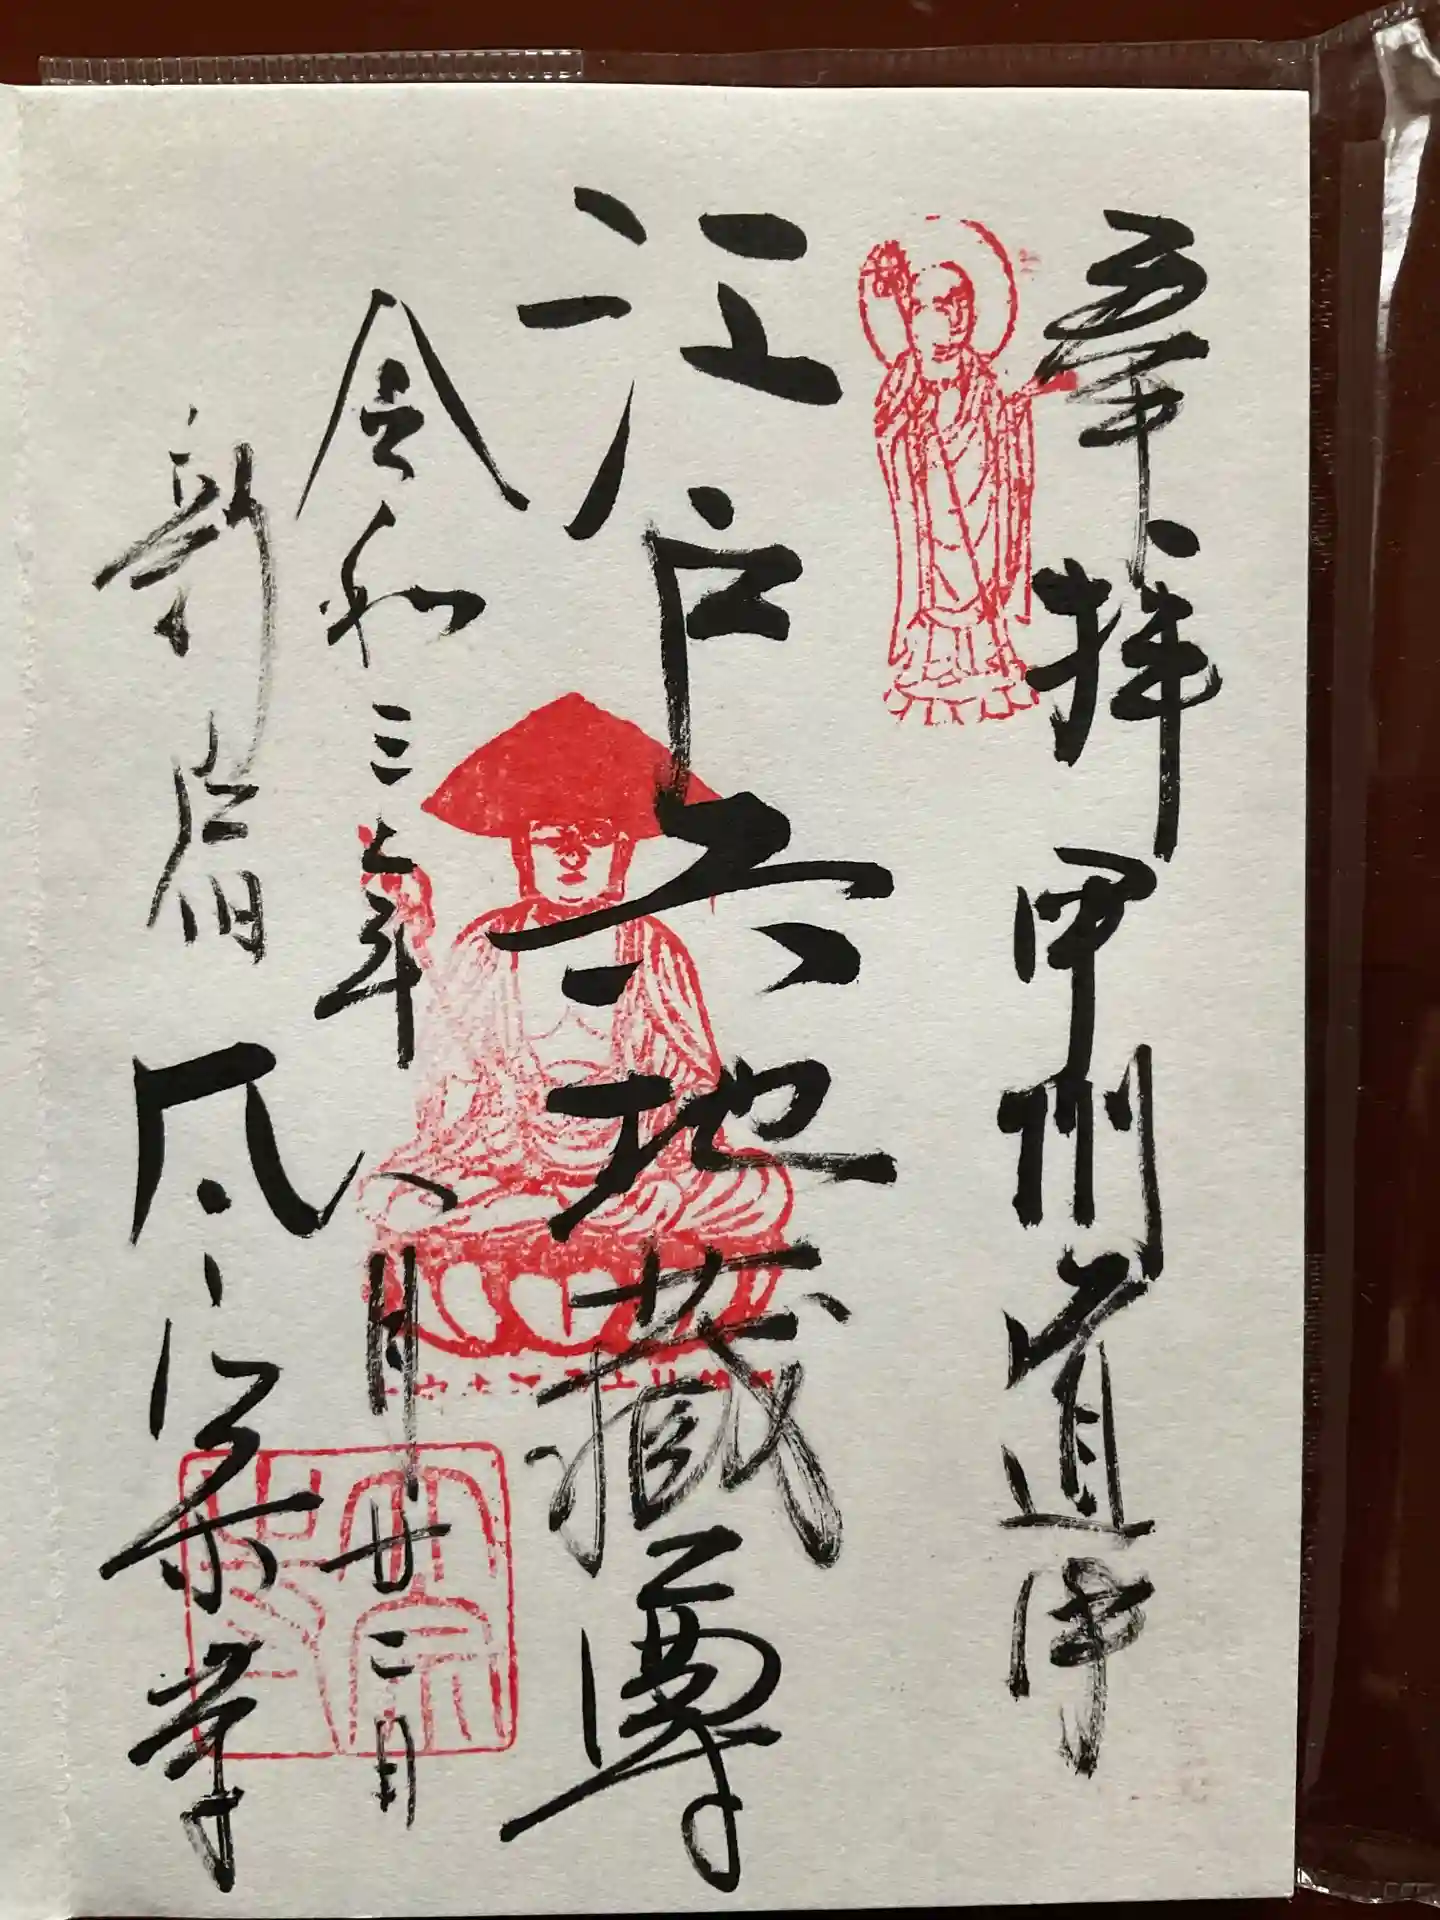 奉拝 甲州道中
江戸六地蔵尊
令和三年八月廿二日
新宿 太宗寺